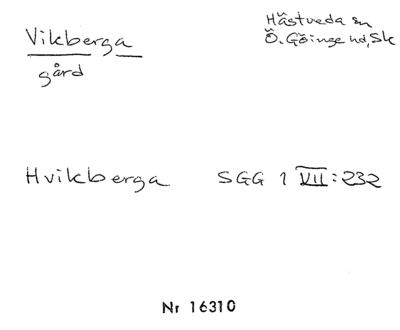 Vikberga
gård
Hästveda sn
Ö. Göinge hd, Sk
Hvikberga SGG 1 VII:232
Nr 16310